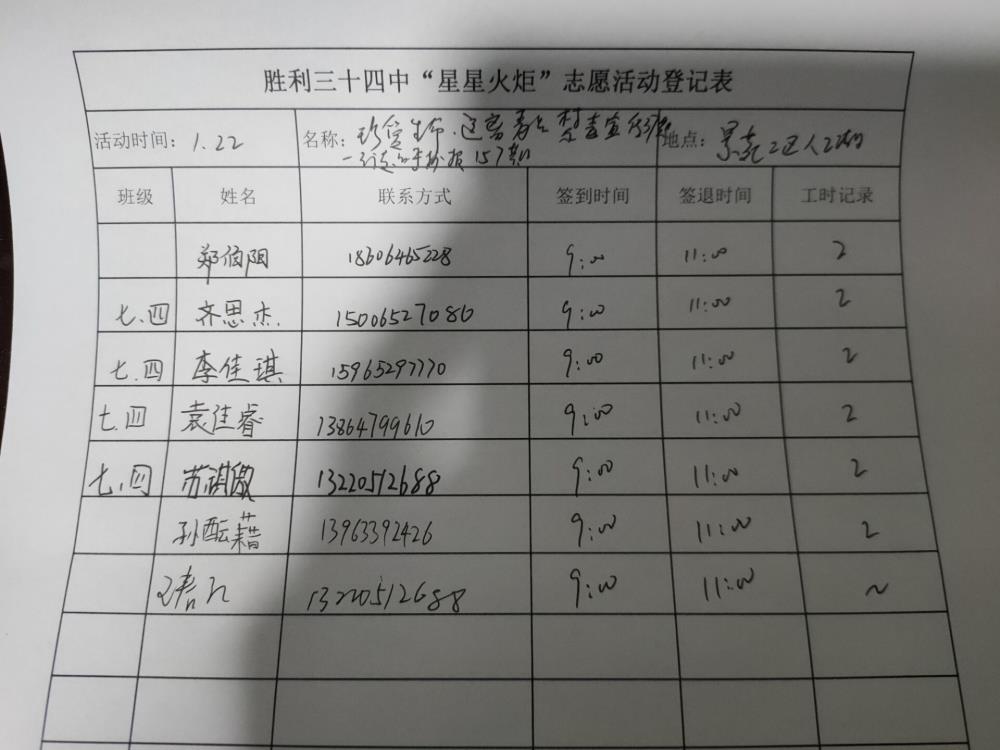 胜利三十四中“星星火炬”志愿活动登记表
活动时间：1.22 名称：珍爱生命.远离毒品 禁毒宣 地点：景苑2区
手抄报 157期
班级 姓名 联系方式 签到时间 签退时间 工时记录
郑伯阳 18606465228 9:00 11:00 2
七.四 齐思杰. 15006527086 9:00 11:00 2
七.四 李佳琪 15965297770 9:00 11:00 2
七.四 袁佳睿 13864799610 9:00 11:00 2
七.四 苏祺傲 13220512688 9:00 11:00 2
孙酝藉 13963392426 9:00 11:00 2
13220512688 9:00 11:00 2